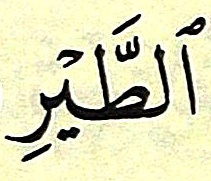 ٱلطَّيْرِ